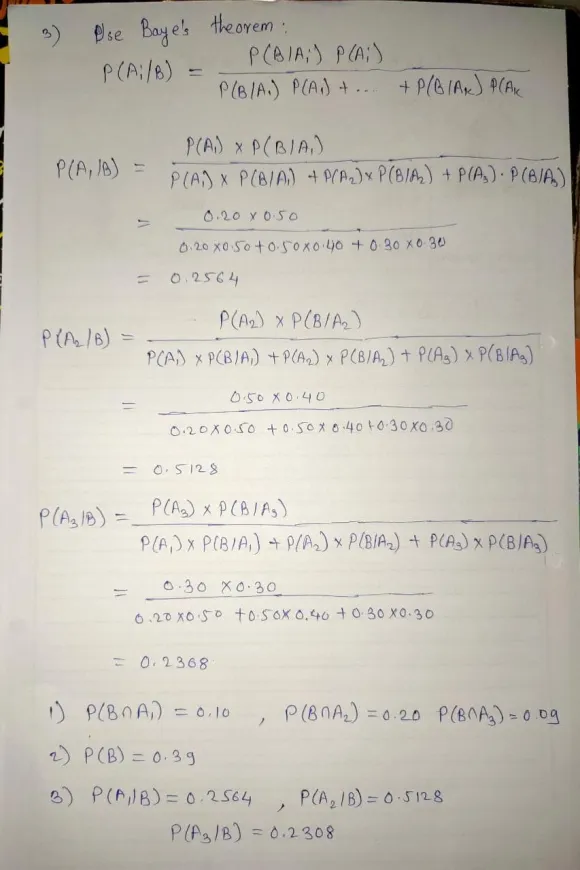 3) Use Baye's theorem :
P(Ai/B) = P(B/Ai) P(Ai)
P(B/A₁) P(A₁) + ... + P(B/Aₖ) P(Aₖ
P(A₁/B) = P(A₁) x P(B/A₁)
P(A₁) x P(B/A₁) + P(A₂) x P(B/A₂) + P(A₃) · P(B/A₃)
= 0.20 x 0.50
0.20 x 0.50 + 0.50 x 0.40 + 0.30 x 0.30
= 0.2564
P(A₂/B) = P(A₂) x P(B/A₂)
P(A₁) x P(B/A₁) + P(A₂) x P(B/A₂) + P(A₃) x P(B/A₃)
= 0.50 x 0.40
0.20 x 0.50 + 0.50 x 0.40 + 0.30 x 0.30
= 0.5128
P(A₃/B) = P(A₃) x P(B/A₃)
P(A₁) x P(B/A₁) + P(A₂) x P(B/A₂) + P(A₃) x P(B/A₃)
= 0.30 x 0.30
0.20 x 0.50 + 0.50 x 0.40 + 0.30 x 0.30
= 0.2368
1) P(B∩A₁) = 0.10 , P(B∩A₂) = 0.20 P(B∩A₃) = 0.09
2) P(B) = 0.39
3) P(A₁/B) = 0.2564 , P(A₂/B) = 0.5128
P(A₃/B) = 0.2308